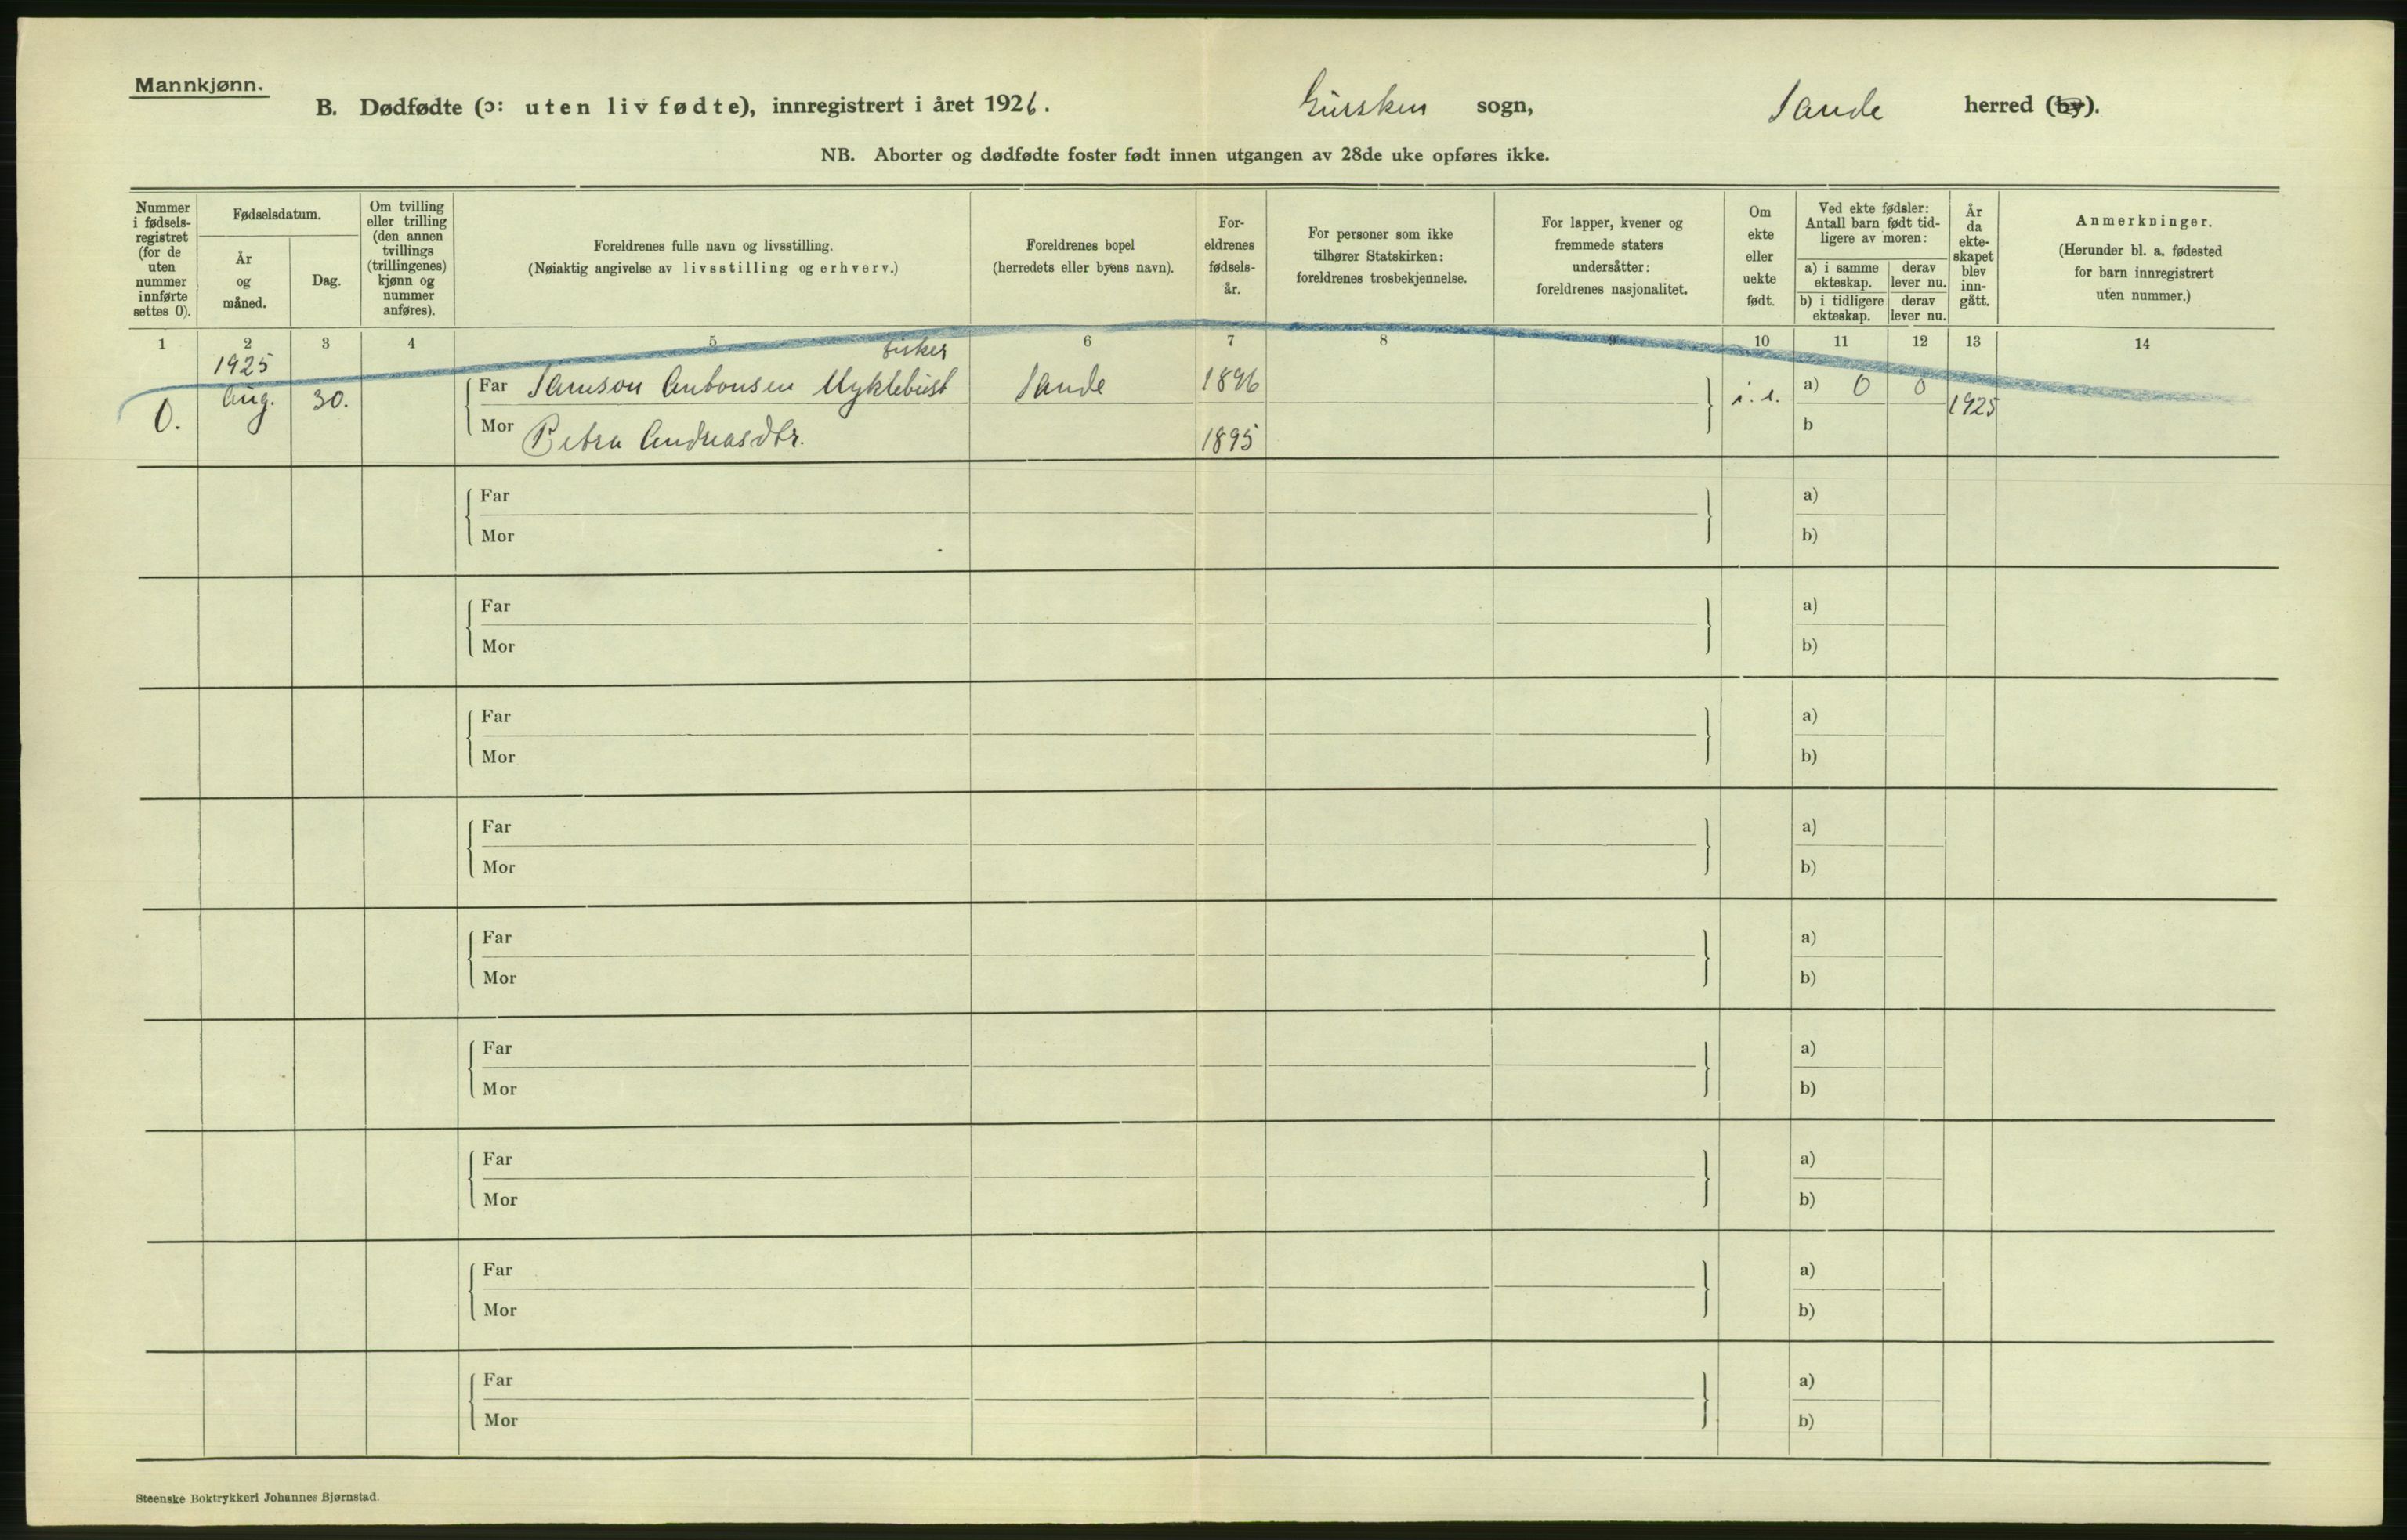 Mannkjønn.
B. Dødfødte (ɔ: uten liv fødte), innregistrert i året 1926. Gursken sogn, Sande herred (by).
NB. Aborter og dødfødte foster født innen utgangen av 28de uke opføres ikke.
Nummer i fødsels-registret (for de uten nummer innførte settes 0).
Fødselsdatum.
År og måned.
Dag.
Om tvilling eller trilling (den annen tvillings (trillingenes) kjønn og nummer anføres).
Foreldrenes fulle navn og livsstilling.
(Nøiaktig angivelse av livsstilling og erhverv.)
Foreldrenes bopel
(herredets eller byens navn).
For-eldrenes fødsels-år.
For personer som ikke tilhører Statskirken: foreldrenes trosbekjennelse.
For lapper, kvener og fremmede staters undersåtter: foreldrenes nasjonalitet.
Om ekte eller uekte født.
Ved ekte fødsler: Antall barn født tid-ligere av moren:
a) i samme ekteskap.
derav lever nu.
b) i tidligere ekteskap.
derav lever nu.
År da ekte-skapet blev inn-gått.
Anmerkninger.
(Herunder bl. a. fødested for barn innregistrert uten nummer.)
1 2 3 4 5 6 7 8 9 10 11 12 13 14
1925 fisker
0. Aug. 30. Far Samson Antonsen Myklebust Sande 1896 i. e. a) 0 0 1925
Mor Petra Andreasdtr. 1895 b
Far a)
Mor b)
Far a)
Mor b)
Far a)
Mor b)
Far a)
Mor b)
Far a)
Mor b)
Far a)
Mor b)
Far a)
Mor b)
Far a)
Mor b)
Far a)
Mor b)
Steenske Boktrykkeri Johannes Bjørnstad.